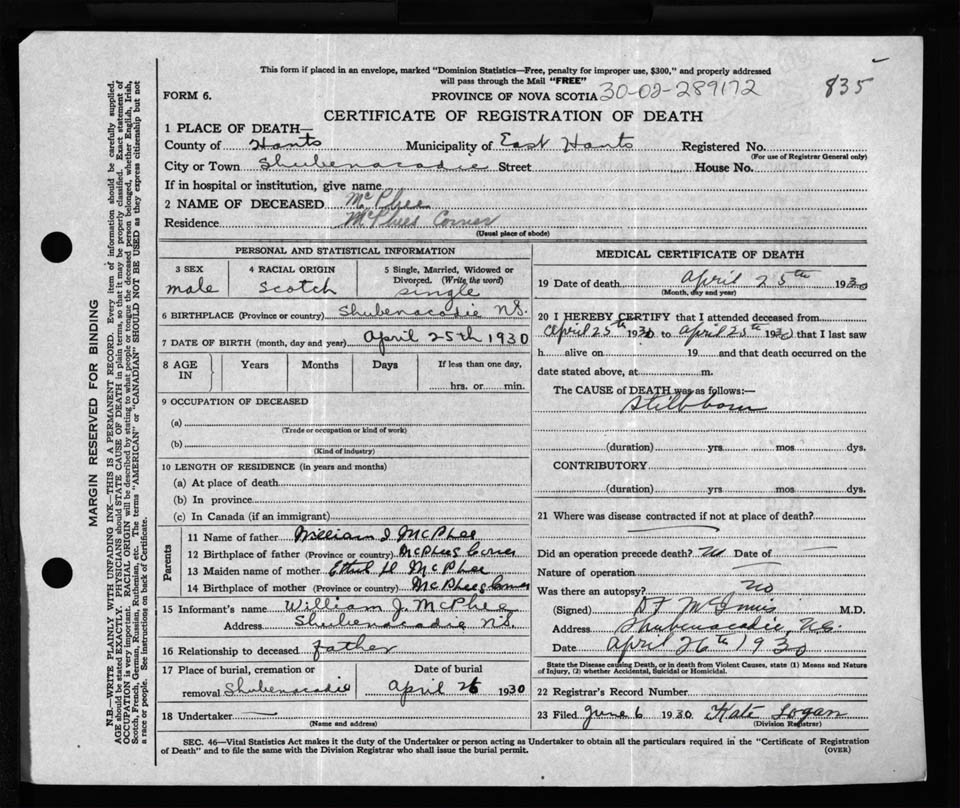 This form if placed in an envelope, marked "Dominion Statistics—Free, penalty for improper use, $300," and properly addressed
will pass through the Mail "FREE"
835
FORM 6. PROVINCE OF NOVA SCOTIA 30-02-289172
CERTIFICATE OF REGISTRATION OF DEATH
1 PLACE OF DEATH—
County of Hants Municipality of East Hants Registered No.
(For use of Registrar General only)
City or Town Shubenacadie Street House No.
If in hospital or institution, give name
2 NAME OF DECEASED McPhee
Residence McPhees Corner
(Usual place of abode)
PERSONAL AND STATISTICAL INFORMATION
3 SEX 4 RACIAL ORIGIN 5 Single, Married, Widowed or
Divorced. (Write the word)
male Scotch single
6 BIRTHPLACE (Province or country) Shubenacadie N.S.
7 DATE OF BIRTH (month, day and year) April 25th 1930
8 AGE IN Years Months Days If less than one day,
hrs. or min.
9 OCCUPATION OF DECEASED
(a)
(Trade or occupation or kind of work)
(b)
(Kind of industry)
10 LENGTH OF RESIDENCE (in years and months)
(a) At place of death
(b) In province
(c) In Canada (if an immigrant)
Parents
11 Name of father William J McPhee
12 Birthplace of father (Province or country) McPhees Corner
13 Maiden name of mother Ethel McPhee
14 Birthplace of mother (Province or country) McPhees Corner
15 Informant's name William J. McPhee
Address Shubenacadie N.S.
16 Relationship to deceased father
17 Place of burial, cremation or Date of burial
removal Shubenacadie April 26 1930
18 Undertaker
(Name and address)
MEDICAL CERTIFICATE OF DEATH
19 Date of death April 25th 1930
(Month, day and year)
20 I HEREBY CERTIFY that I attended deceased from
April 25th 1930 to April 25th 1930 that I last saw
h alive on 19 and that death occurred on the
date stated above, at m.
The CAUSE of DEATH was as follows:—
Stillborn
(duration) yrs. mos. dys.
CONTRIBUTORY
(duration) yrs. mos. dys.
21 Where was disease contracted if not at place of death?
Did an operation precede death? No Date of
Nature of operation
Was there an autopsy? No
(Signed) D F McInnis M.D.
Address Shubenacadie, N.S.
Date April 26th 1930
State the Disease causing Death, or in death from Violent Causes, state (1) Means and Nature
of Injury, (2) whether Accidental, Suicidal or Homicidal.
22 Registrar's Record Number
23 Filed June 6 1930 Kate Logan
(Division Registrar)
SEC. 46—Vital Statistics Act makes it the duty of the Undertaker or person acting as Undertaker to obtain all the particulars required in the "Certificate of Registration
of Death" and to file the same with the Division Registrar who shall issue the burial permit. (OVER)
MARGIN RESERVED FOR BINDING
N.B.—WRITE PLAINLY WITH UNFADING INK—THIS IS A PERMANENT RECORD. Every item of information should be carefully supplied.
AGE should be stated EXACTLY. PHYSICIANS should STATE CAUSE OF DEATH in plain terms, so that it may be properly classified. Exact statement of
OCCUPATION is very important. RACIAL ORIGIN will be described by stating to what people or tongue the deceased person belonged, whether English, Irish,
Scotch, French, German, Russian, Ruthenian, etc. The terms "AMERICAN" or "CANADIAN" SHOULD NOT BE USED as they express citizenship but not
a race or people. See instructions on back of Certificate.